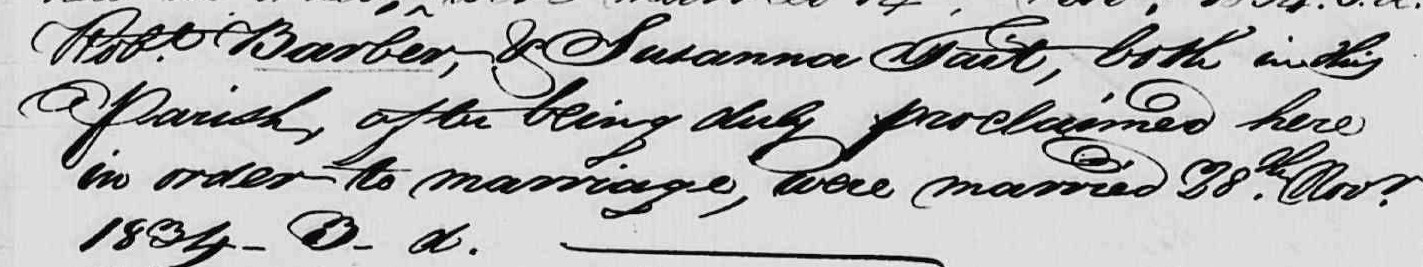 Robt. Barber, & Susanna Tait, both in this
Parish, after being duly proclaimed here
in order to marriage, were married 28th. Novr.
1834 - B - d.